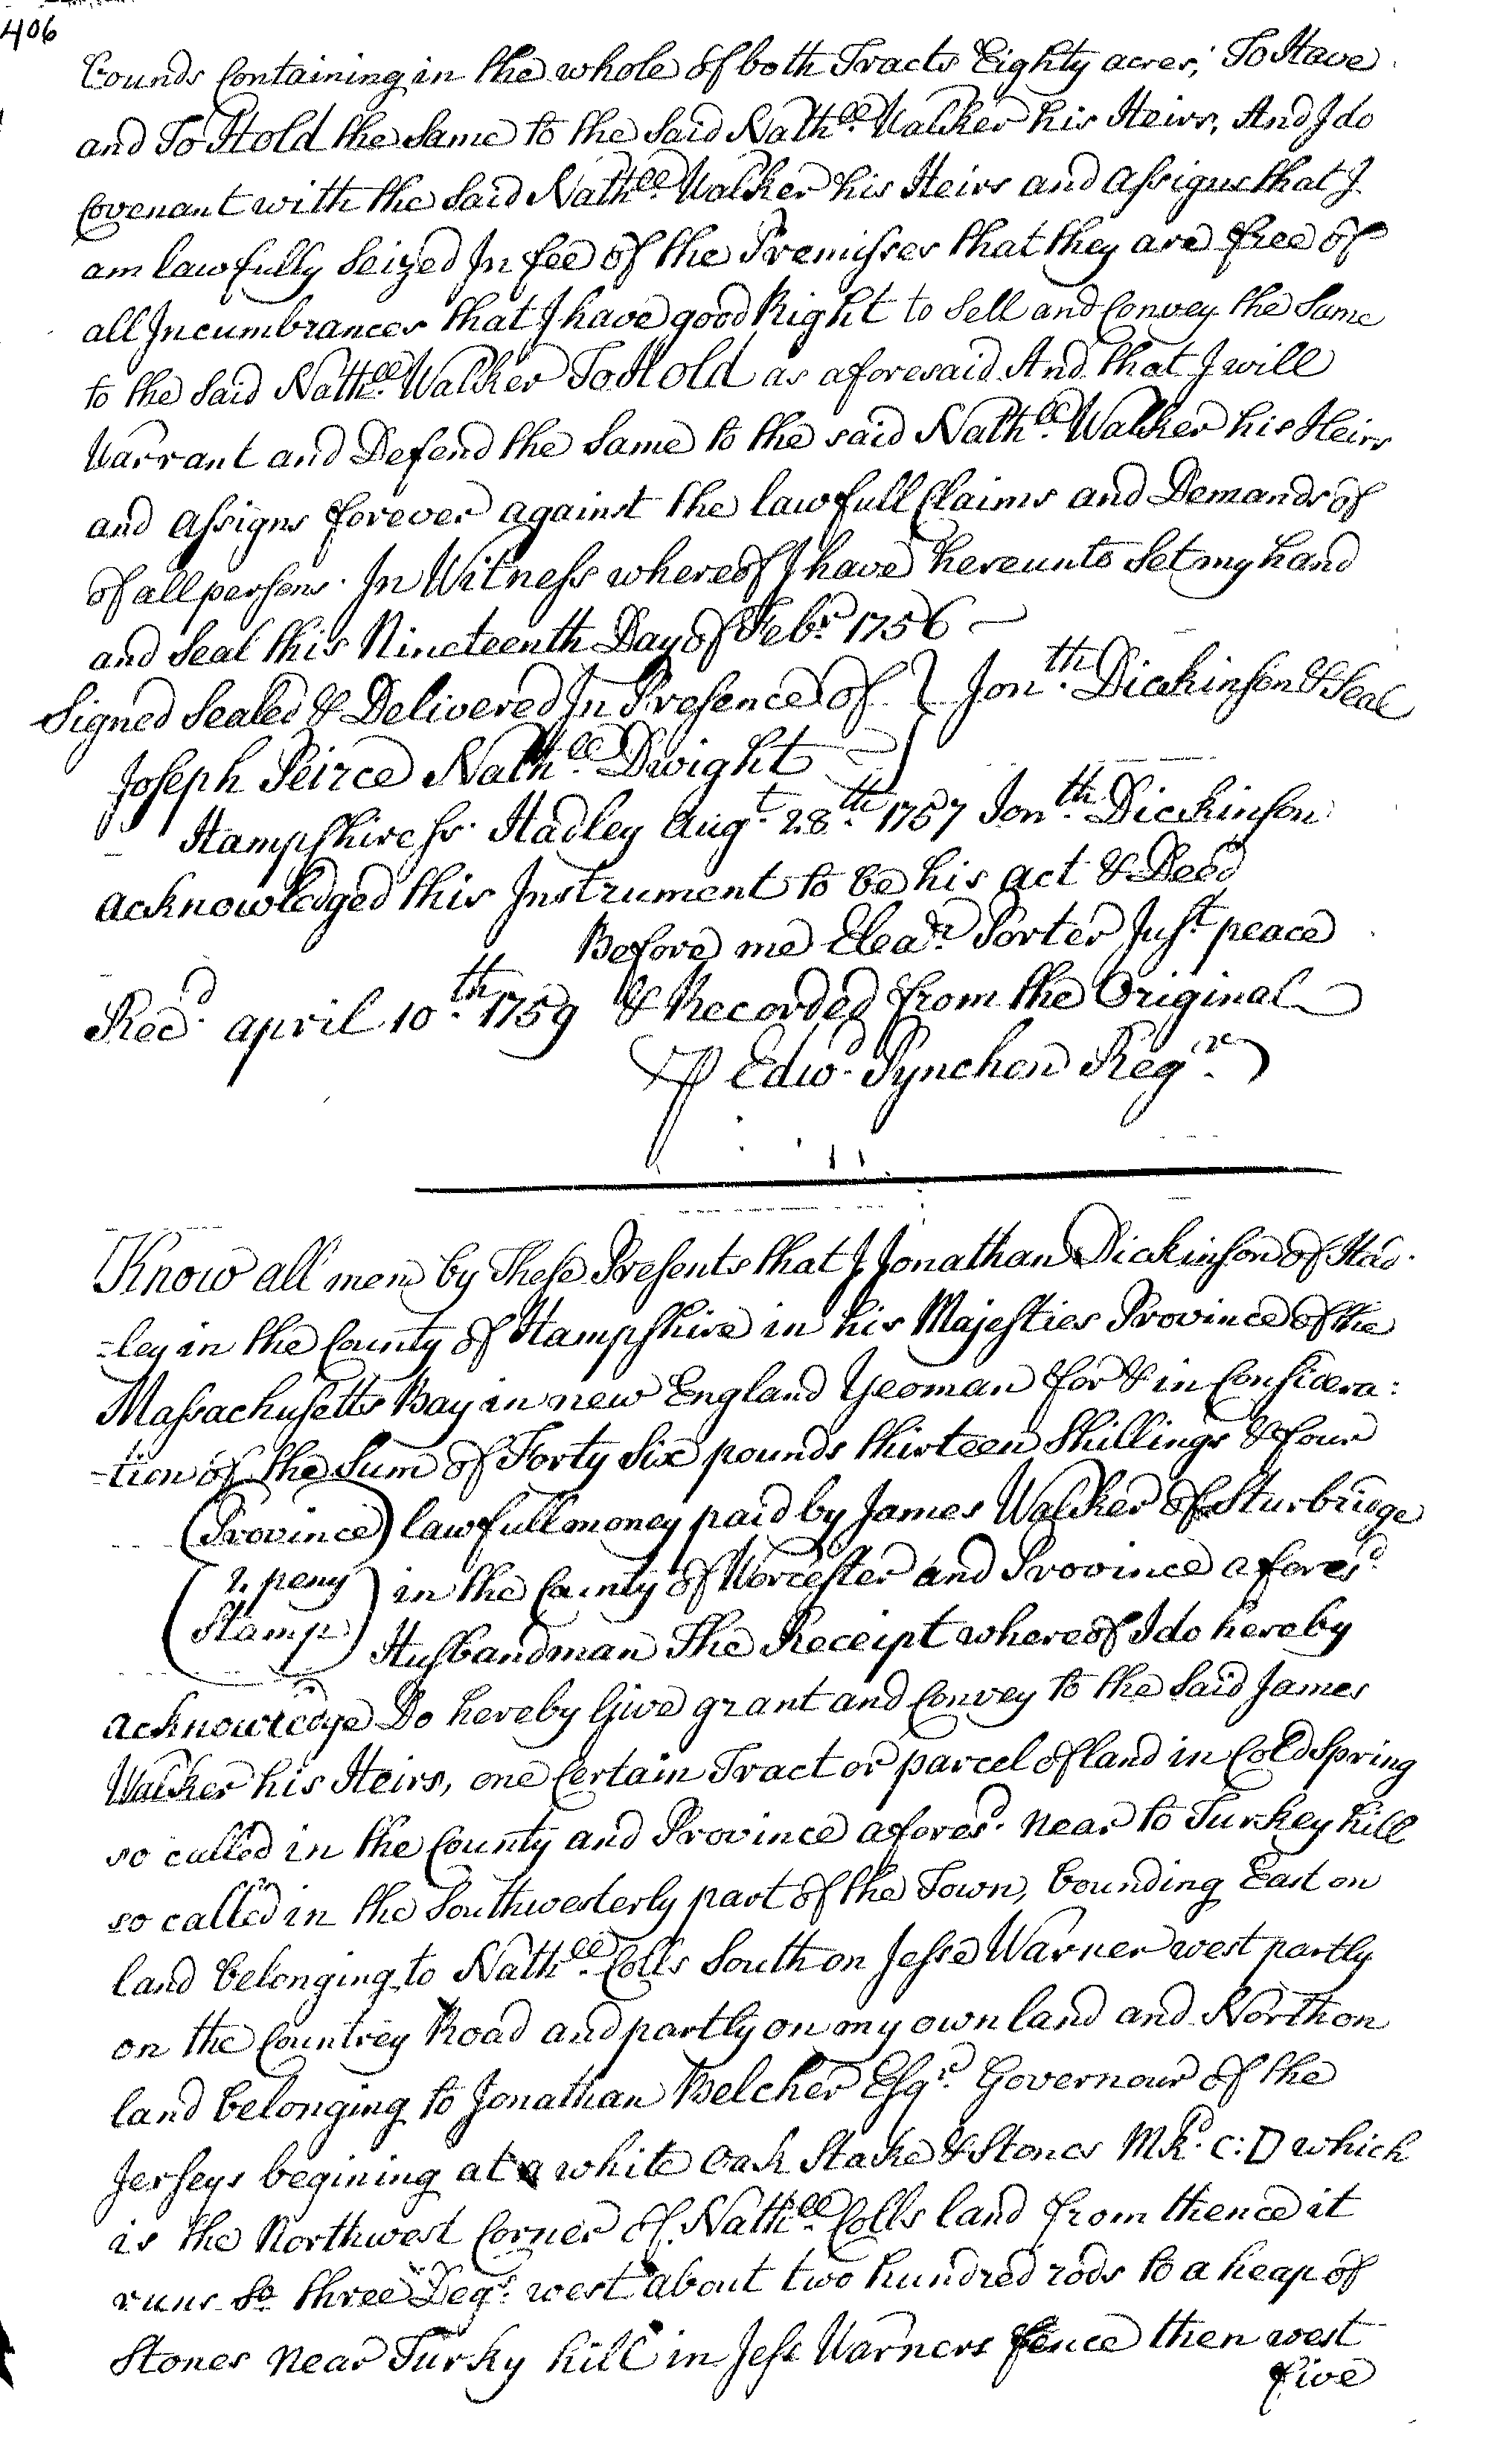 406
bounds Containing in the whole of both Tracts Eighty acres; To Have
and To Hold the Same to the Said Nathll. Walker his Heirs, And I do
Covenant with the Said Nathll. Walker his Heirs and assigns that I
am lawfully Seized In fee of the Premisses that they are free of
all Incumbrances that I have good Right to Sell and Convey the Same
to the Said Nathll. Walker To Hold as aforesaid And that I will
Warrant and Defend the Same to the said Nathll. Walker his Heirs
and assigns forever against the lawfull Claims and Demands of
of all persons. In Witness whereof I have hereunto Set my hand
and Seal this Nineteenth Day of Febr. 1756 —
Signed Sealed & Delivered In Presence of } Jonth. Dickinson & Seal
Joseph Peirce Nathll. Dwight
Hampshire Ss. Hadley Augt. 28th. 1757 Jonth. Dickinson
acknowledged this Instrument to be his act & Deed
Before me Eleazr. Porter Just peace
Recd. april 10th. 1759 & Recorded from the Original
P Edwd. Pynchon Regr.
Know all men by These Presents that I Jonathan Dickinson of Had-
-ley in the County of Hampshire in his Majesties Province of the
Massachusetts Bay in new England Yeoman for & in Considera:
-tion of the Sum of Forty Six pounds thirteen Shillings & four
(Province) lawfull money paid by James Walker of Sturbridge
(2 peny) in the County of Worcester and Province aforesd.
(Stamp) Husbandman The Receipt whereof I do hereby
acknowledge Do hereby Give grant and Convey to the Said James
Walker his Heirs, one Certain Tract or parcel of land in Cold Spring
so called in the County and Province aforesd. near to Turkey hill
so called in the Southwesterly part of the Town, bounding East on
land belonging to Nathll. Colls South on Jesse Warner west partly
on the Countrey Road and partly on my own land and North on
land belonging to Jonathan Belcher Esqr. Governour of the
Jerseys begining at a white Oak Stake & Stones Mkd. C:D which
is the Northwest Corner of Nathll. Colls land from thence it
runs So. three Degs. west about two hundred rods to a heap of
Stones near Turky hill in Jess Warners fence then west
five